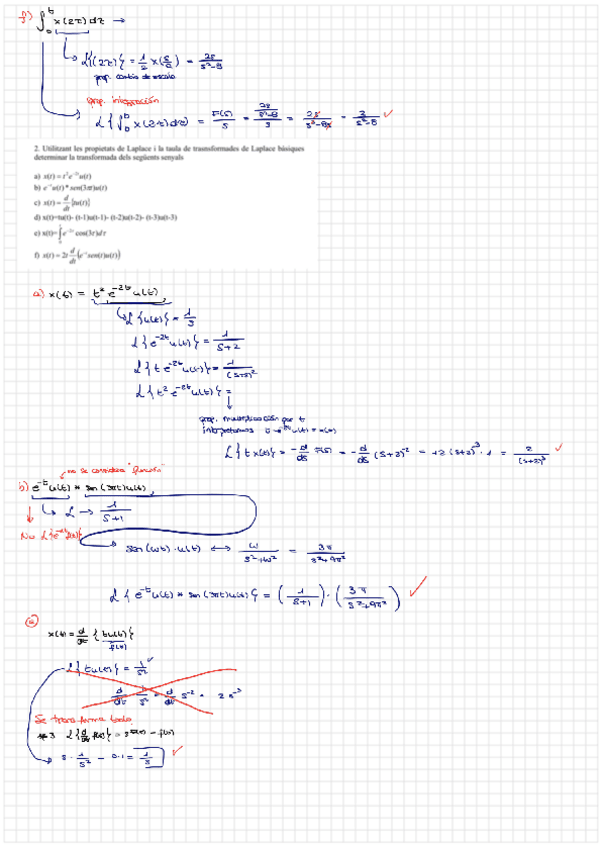 ∫₀ᵗ x(2τ)dτ →
L{(2τ)} = 1/2 x(s/2) = 2s/s²-8
prop. cambio de escala
prop. integración
L{∫₀ᵗ x(2τ)dτ} = F(s)/s = (2s/s²-8)/s = 2s/s³-8s = 2/s²-8 ✓
2. Utilitzant les propietats de Laplace i la taula de trasnsformades de Laplace bàsiques
determinar la transformada dels següents senyals
a) x(t) = t²e⁻²ᵗu(t)
b) e⁻ᵗu(t)*sen(3πt)u(t)
c) x(t) = d/dt {tu(t)}
d) x(t)=tu(t)- (t-1)u(t-1)- (t-2)u(t-2)- (t-3)u(t-3)
e) x(t)=∫₀ᵗ e⁻²ᵗ cos(3τ)dτ
f) x(t) = 2t d/dt (e⁻ᵗsen(t)u(t))
a) x(t) = t² e⁻²ᵗ u(t)
L{u(t)} = 1/s
L{e⁻²ᵗ u(t)} = 1/s+2
L{t e⁻²ᵗ u(t)} = 1/(s+2)²
L{t² e⁻²ᵗ u(t)} =
prop. multiplicación por t
L{t x(t)} = -d/ds F(s) = -d/ds (s+2)⁻² = +2(s+2)⁻³·1 = 2/(s+2)³ ✓
no se considera "función"
b) e⁻ᵗu(t) * sen(3πt)u(t)
L → 1/s+1
No
sen(ωt)·u(t) ↔ ω/s²+ω² = 3π/s²+9π²
L{e⁻ᵗu(t) * sen(3πt)u(t)} = (1/s+1)·(3π/s²+9π²) ✓
c)
x(t) = d/dt {tu(t)}
f(t)
L{tu(t)} = 1/s² ✓
d/dt 1/s² = d/dt s⁻² = 2s⁻³
Se transforma todo
L{d/dt f(t)} = s F(s) - f(0)
s·1/s² - 0·1 = 1/s ✓